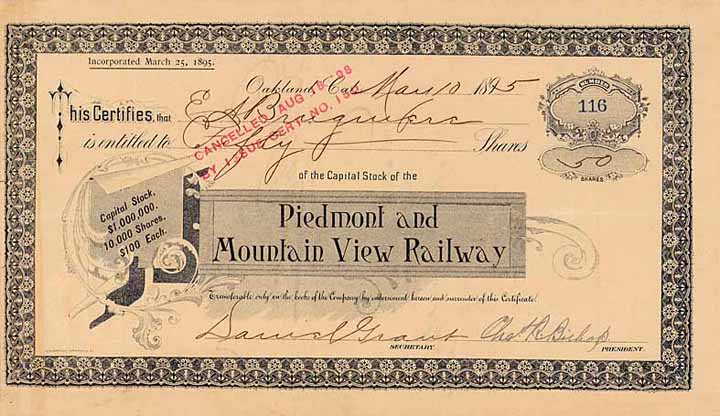 Incorporated March 25, 1895.
Oakland, Cal. May 10 1895
NUMBER
116
This Certifies, that E A
is entitled to Fifty Shares
50
SHARES.
CANCELLED AUG 18 98
BY ISSUE CERT. NO.
of the Capital Stock of the
Capital Stock,
$1,000,000.
10,000 Shares,
$100 Each.
Piedmont and
Mountain View Railway
Transferable only on the books of the Company by endorsement hereon and surrender of this Certificate.
Daniel Grant Chas R. Bishop
SECRETARY. PRESIDENT.